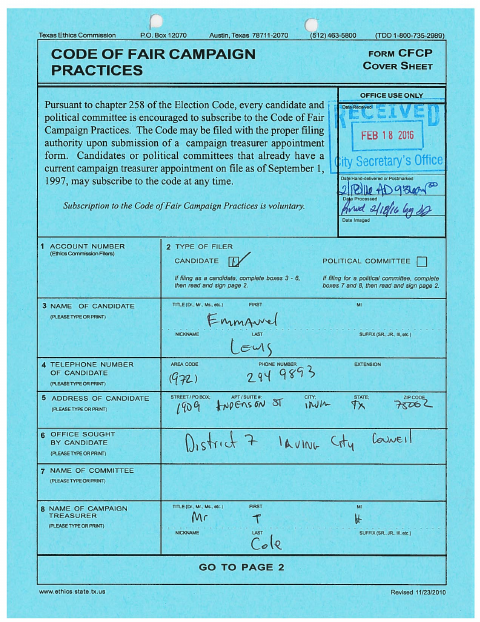 Texas Ethics Commission P.O. Box 12070 Austin, Texas 78711-2070 (512) 463-5800 (TDD 1-800-735-2989)
CODE OF FAIR CAMPAIGN PRACTICES
FORM CFCP
COVER SHEET
OFFICE USE ONLY
Date Received
RECEIVED
FEB 18 2016
City Secretary's Office
Date Hand-delivered or Postmarked
Date Processed
Date Imaged
Pursuant to chapter 258 of the Election Code, every candidate and
political committee is encouraged to subscribe to the Code of Fair
Campaign Practices. The Code may be filed with the proper filing
authority upon submission of a campaign treasurer appointment
form. Candidates or political committees that already have a
current campaign treasurer appointment on file as of September 1,
1997, may subscribe to the code at any time.
Subscription to the Code of Fair Campaign Practices is voluntary.
1 ACCOUNT NUMBER
(Ethics Commission Filers)
2 TYPE OF FILER
CANDIDATE
POLITICAL COMMITTEE
If filing as a candidate, complete boxes 3 - 6,
then read and sign page 2.
If filing for a political committee, complete
boxes 7 and 8, then read and sign page 2.
3 NAME OF CANDIDATE
(PLEASE TYPE OR PRINT)
TITLE (Dr., Mr., Ms., etc.) FIRST MI
Emmanuel
NICKNAME LAST SUFFIX (SR., JR., III, etc.)
Lewis
4 TELEPHONE NUMBER
OF CANDIDATE
(PLEASE TYPE OR PRINT)
AREA CODE PHONE NUMBER EXTENSION
(972) 294 9893
5 ADDRESS OF CANDIDATE
(PLEASE TYPE OR PRINT)
STREET / PO BOX; APT / SUITE #; CITY; STATE; ZIP CODE
1909 ST TX 75062
6 OFFICE SOUGHT
BY CANDIDATE
(PLEASE TYPE OR PRINT)
District 7 Irving City Council
7 NAME OF COMMITTEE
(PLEASE TYPE OR PRINT)
8 NAME OF CAMPAIGN
TREASURER
(PLEASE TYPE OR PRINT)
TITLE (Dr., Mr., Ms., etc.) FIRST MI
Mr T
NICKNAME LAST SUFFIX (SR., JR., III, etc.)
Cole
GO TO PAGE 2
www.ethics.state.tx.us Revised 11/23/2010